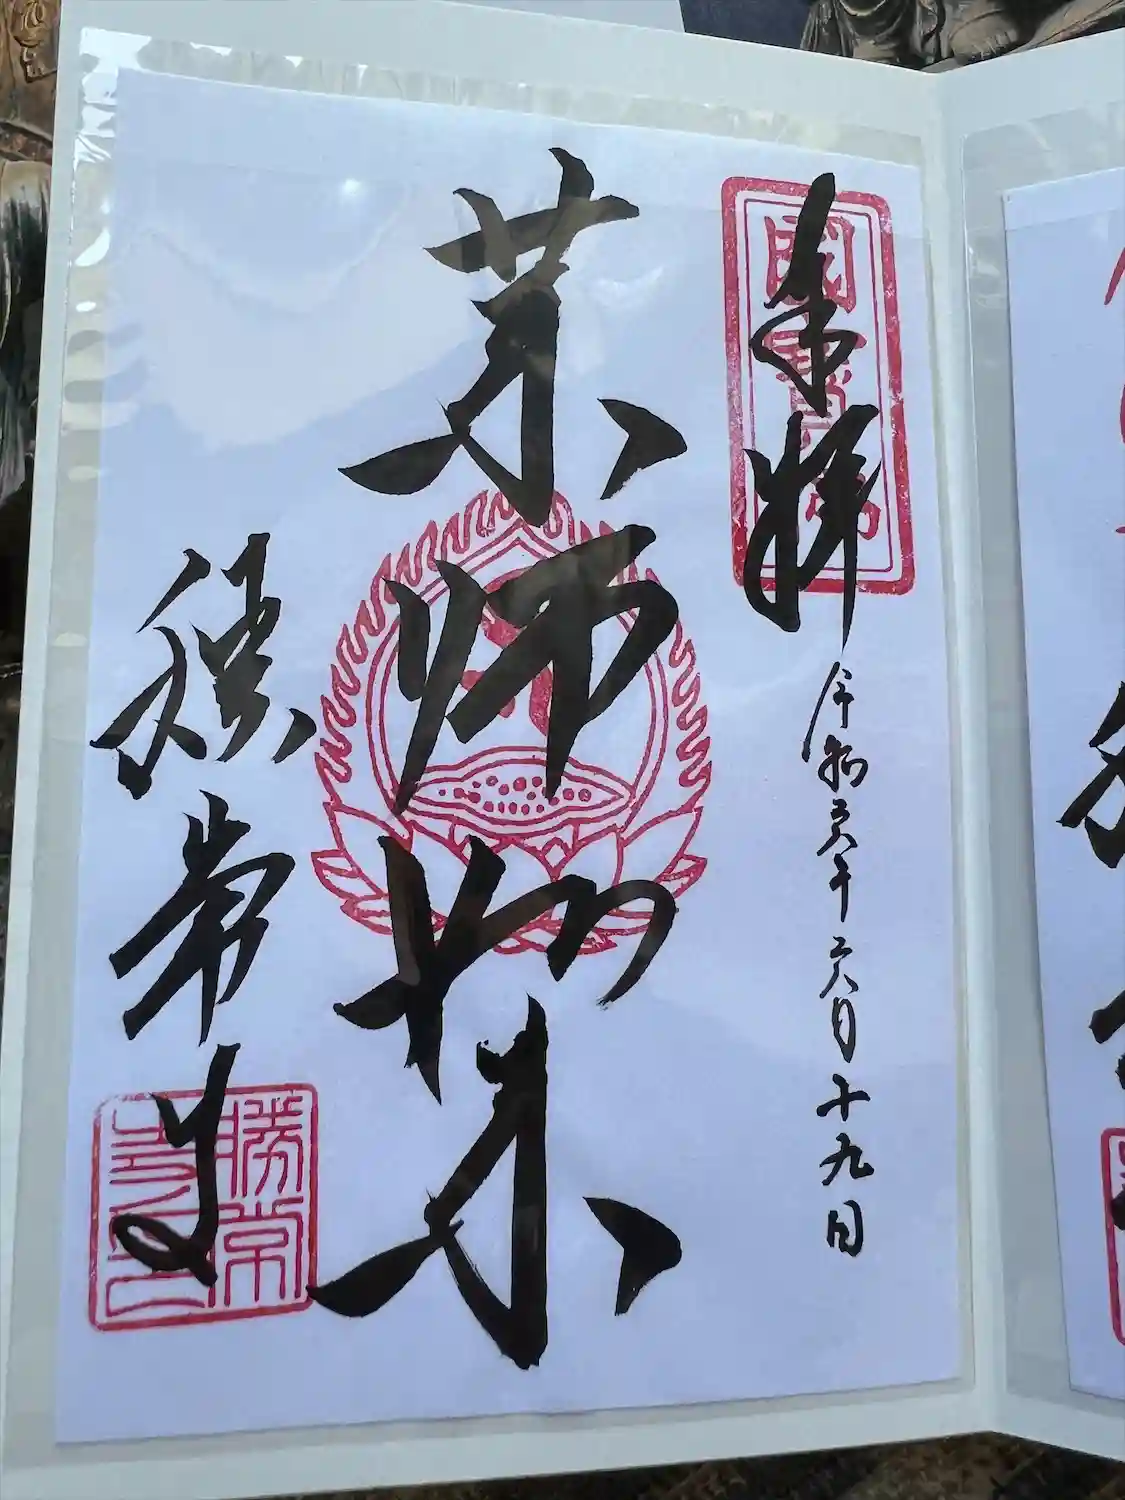 奉拝
國寶
令和六年六月十九日
薬師如来
勝常寺
勝常
寺印